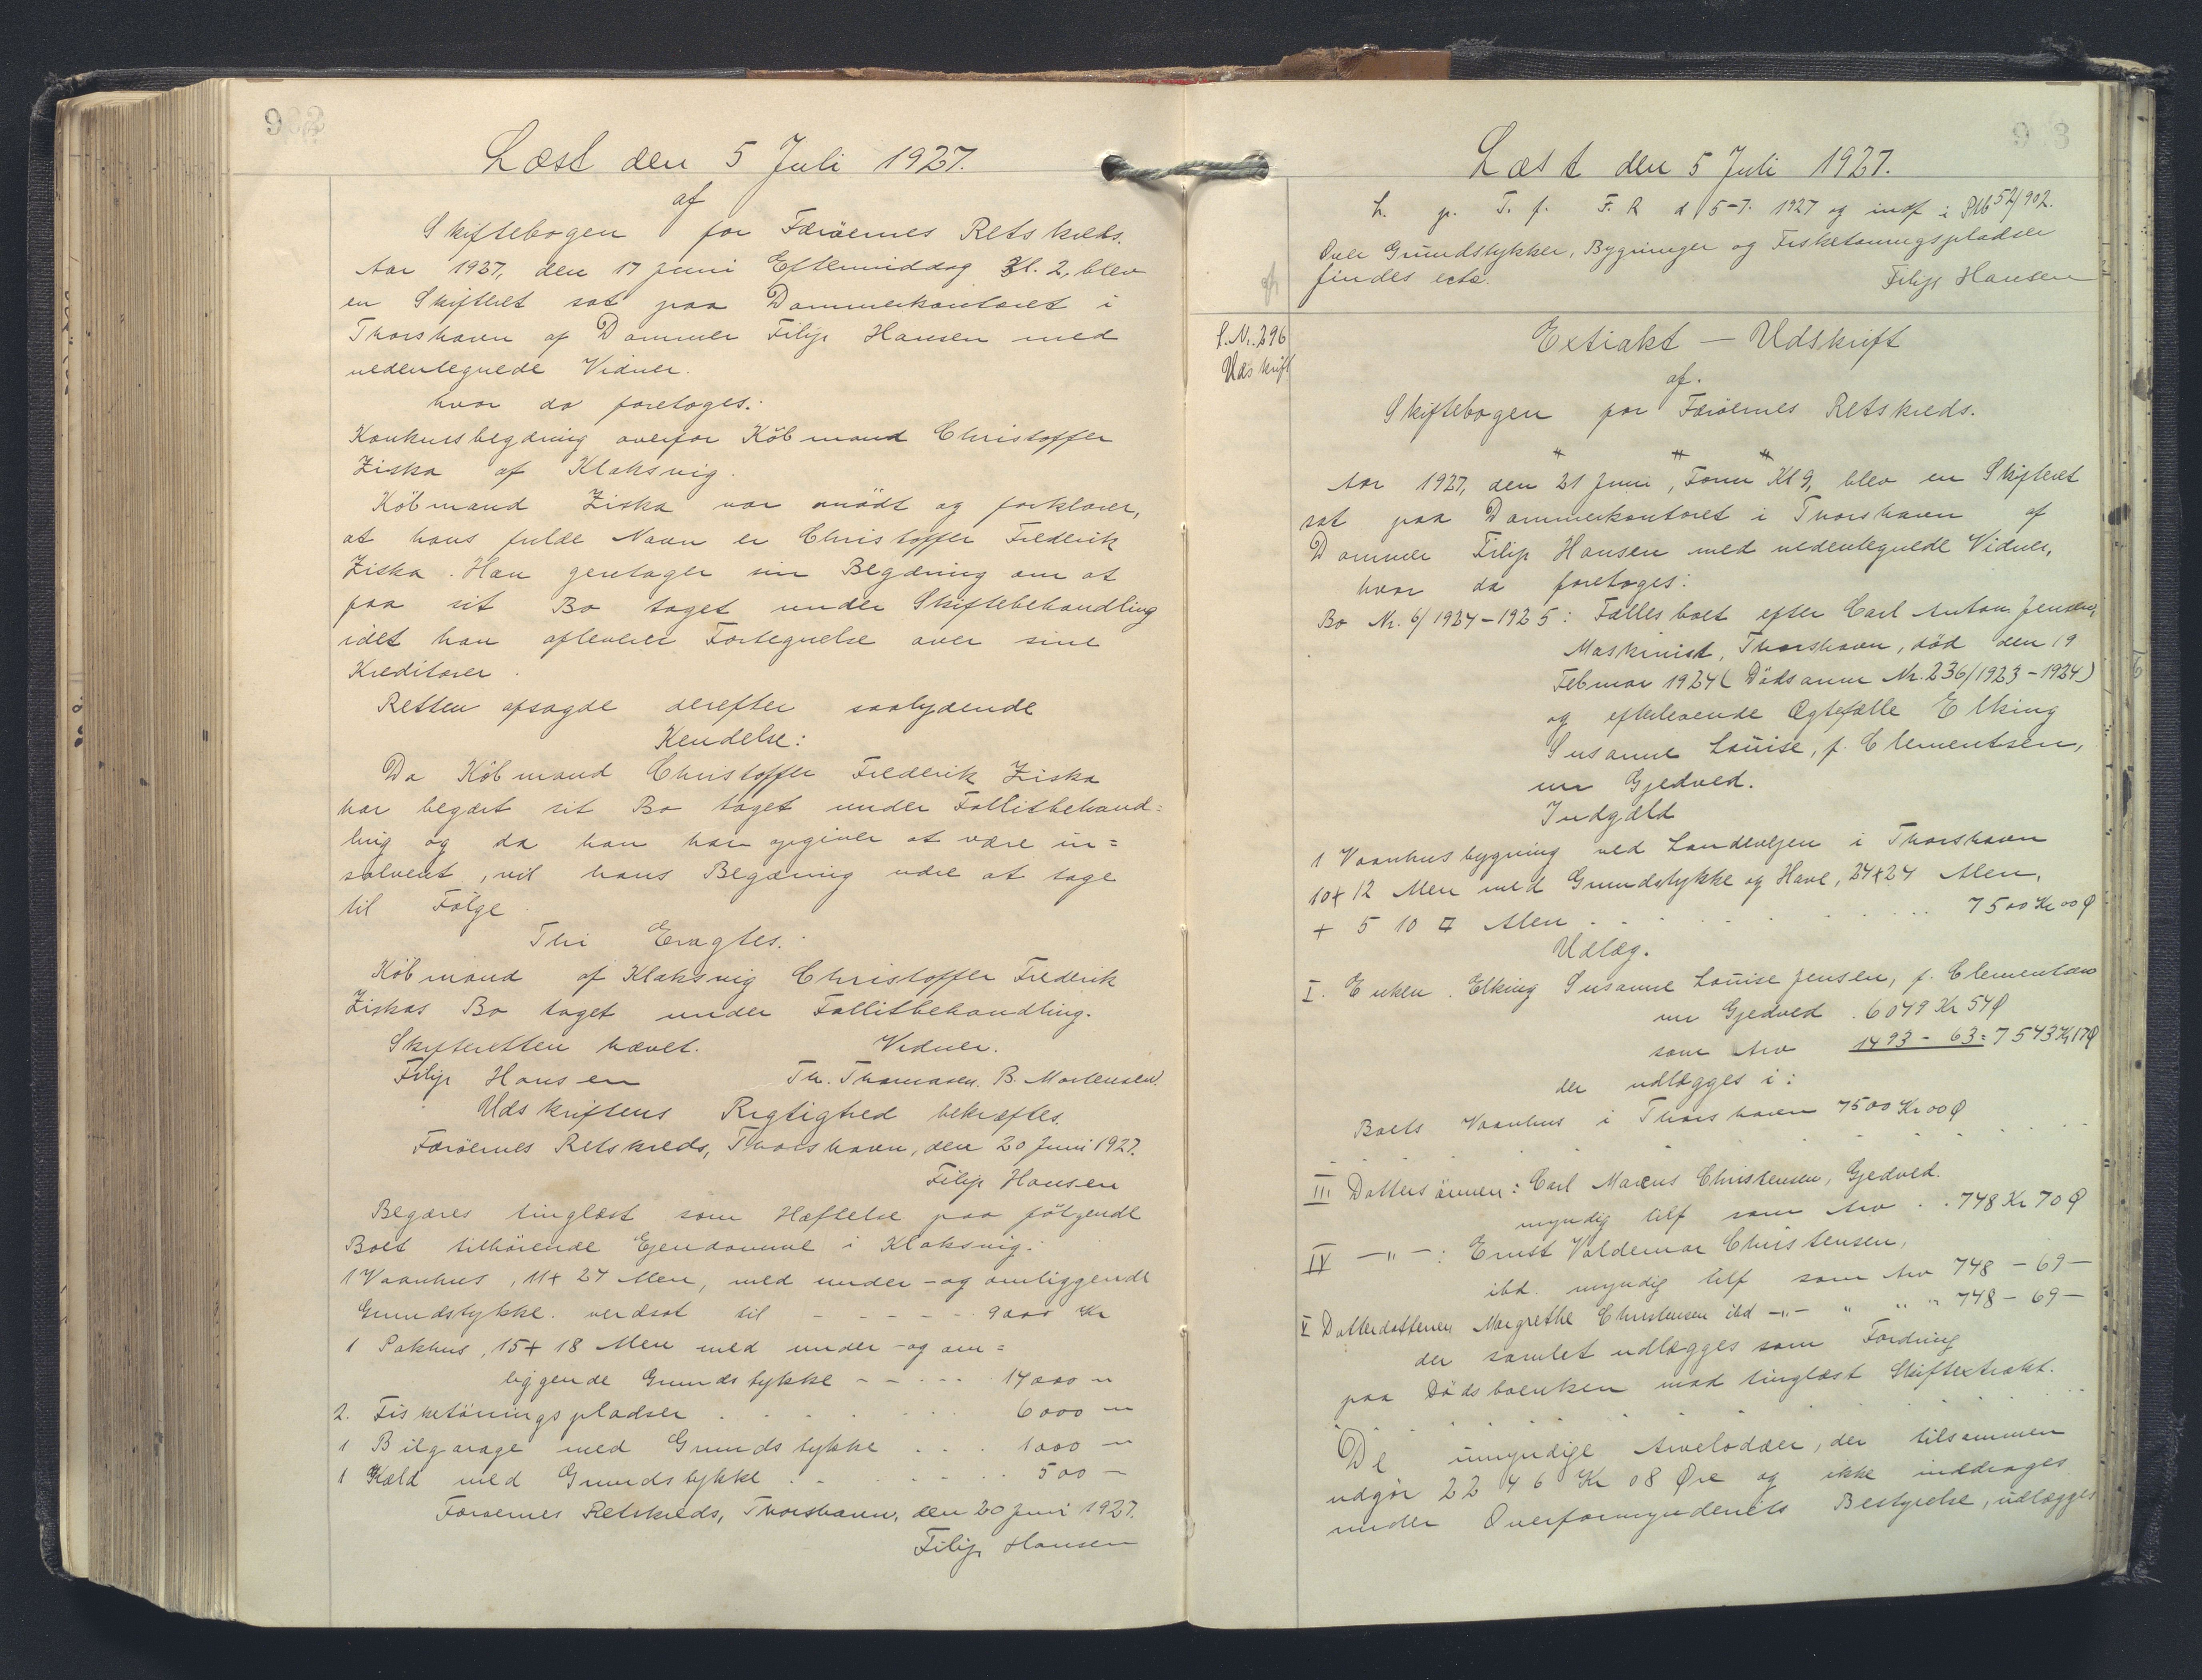 902
Læst den 5 Juli 1927.
af
Skiftebogen for Færöernes Retskreds.
Aar 1927, den 17 Juni Eftermiddag Kl. 2, blev
en Skifteret sat paa Dommerkontoret i
Thorshavn af Dommer Filip Hansen med
undertegnede Vidner.
hvor da foretoges:
Konkursbegæring overfor Köbmand Christoffer
Ziska af Klaksvig.
Köbmand Ziska var mödt og forklarer,
at hans fulde Navn er Christoffer Frederik
Ziska. Han gentager sin Begæring om at
faa sit Bo taget under Skiftebehandling
idet han afleverer Fortegnelse over sine
Kreditorer.
Retten afsagde derefter saalydende
Kendelse:
Da Köbmand Christoffer Frederik Ziska
har begært sit Bo taget under Fallitbehand=
ling og da han han opgiver at være in=
solvent, vil hans Begæring være at tage
til Fölge.
Thi Eragtes:
Köbmand af Klaksvig Christoffer Frederik
Ziskas Bo taget under Fallitbehandling.
Skifteretten hævet. Vidner.
Filip Hansen Th. Thomasen. B. Mortensen.
Udskriftens Rigtighed bekræftes.
Færöernes Retskreds, Thorshavn, den 20 Juni 1927.
Filip Hansen
Begæres tinglæst som Hæftelse paa fölgende
Boet tilhörende Ejendomme i Klaksvig:
1 Vaanhus, 11 x 27 Alen, med under- og omliggende
Grundstykke. verdsat til - - - - - 9000 Kr
1 Pakhus, 15 x 18 Alen med under- og om=
liggende Grundstykke - - - - - 14000 -
2. Fisketörringspladser . . . . . . 6000 -
1 Bilgarage med Grundstykke . . . 1000 -
1 Kæld med Grundstykke . . . . . . 500 -
Færöernes Retskreds, Thorshavn, den 20 Juni 1927.
Filip Hansen
903
Læst den 5 Juli 1927.
L. p. T. f. F. R d 5-7. 1927 og indf i Pb 52/902.
Over Grundstykker, Bygninger og Fisketörringspladser
findes
Filip Hansen
L. Nr. 296
Udskrift
Extrakt - Udskrift
af.
Skiftebogen for Færöernes Retskreds.
Aar 1927, den 21 Juni, Form Kl 9, blev en Skifteret
sat paa Dommerkontoret i Thorshavn af
Dommer Filip Hansen med undertegnede Vidner,
hvor da foretoges:
Bo Nr. 6/1924-1925: Fællesboet efter Carl Anton Jensen,
Maskinist, Thorshavn, död den 19
Februar 1924 (Dödsanm Nr. 236/1923-1924)
og efterlevende Ægtefælle Elking
Susanne Louise, f. Clementsen,
nu Gjedved.
Indgæld
1 Vaanhusbygning ved Landevejen i Thorshavn
10 x 12 Alen med Grundstykke og Have, 24 x 24 Alen,
+ 5 10 □ Alen . . . . . . . . 7500 Kr 00 Ø
Udlæg.
I. Enken. Elking Susanne Louise Jensen, f. Clementsen
nu Gjedved . 6049 Kr 54 Ø
som Arv 1493 - 63 = 7543 Kr 17 Ø
der udlægges i:
Boets Vaanhus i Thorshavn 7500 Kr 00 Ø
III Dattersönnen: Carl Marcus Christensen, Gjedved.
myndig tilf som Arv . . 748 Kr 70 Ø
IV - " - : Ernst Valdemar Christensen,
ibd. myndig tilf som Arv 748 - 69 -
V Datterdatteren Margrethe Christensen ibd - " - " " " 748 - 69 -
der samlet udlægges som Fordring
paa Dödsboenken mod tinglæst Skifteextrakt.
De umyndige Arvelodder, der tilsammen
udgör 2246 Kr 08 Øre og ikke inddrages
under Overformynderiets Bestyrelse, udlægges